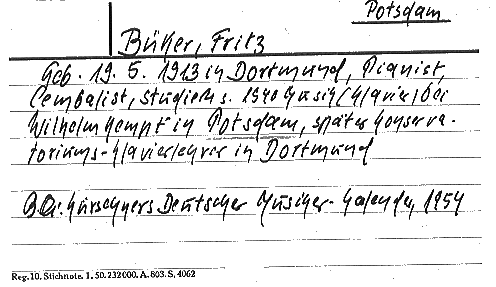 Potsdam
Büker, Fritz
Geb. 19. 5. 1913 in Dortmund, Pianist,
Cembalist, studierte s. 1940 Musik (Klavier) bei
Wilhelm Kempf in Potsdam, später Konserva-
toriums-Klavierlehrer in Dortmund
Kürschners Deutscher Musiker-Kalender, 1954
Reg. 10. Stichnote. 1. 50. 232000. A. 803. S. 4062